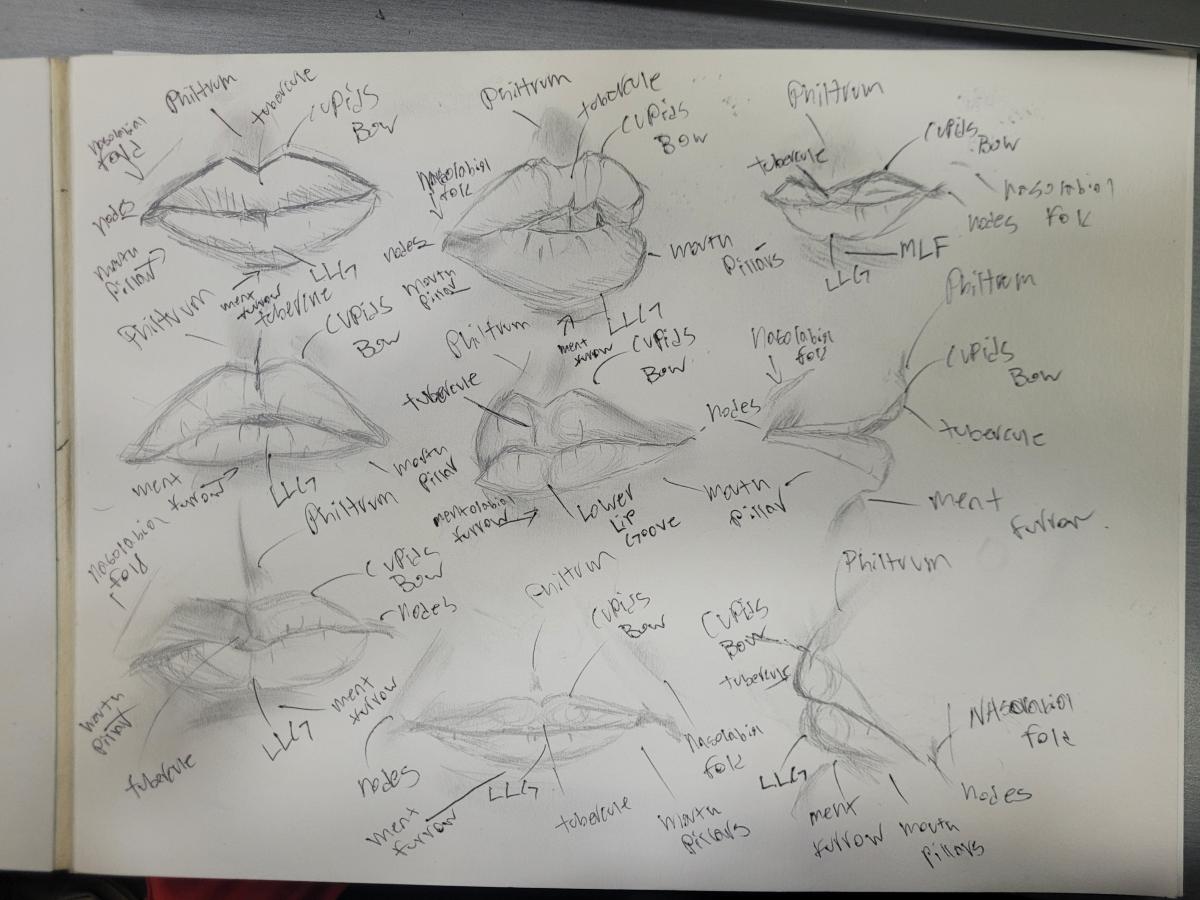 Philtrum
tubercule
Cupids
Bow
Nasolabial
fold
nodes
mouth
pillar
ment
furrow
LLG
Philtrum
tubercule
Cupids
Bow
Nasolabial
folk
nodes
mouth
pillar
mouth
pillars
ment
furrow
LLG
Philtrum
tubercule
Cupids
Bow
Nasolabial
folk
nodes
MLF
LLG
Philtrum
tubercule
Cupids
Bow
ment
furrow
LLG
mouth
pillar
Philtrum
tubercule
Cupids
Bow
nodes
mentolabial
furrow
Lower
Lip
Goove
mouth
pillar
Philtrum
Nasolabial
fold
Cupids
Bow
tubercule
ment
furrow
Nasolabial
fold
Philtrum
Cupids
Bow
nodes
mouth
pillar
tubercule
LLG
ment
furrow
Philtrum
Cupids
Bow
nodes
ment
furrow
LLG
tubercule
mouth
pillars
Nasolabial
fold
Philtrum
Cupids
Bow
tubercule
LLG
ment
furrow
mouth
pillars
nodes
NAsolabial
fold